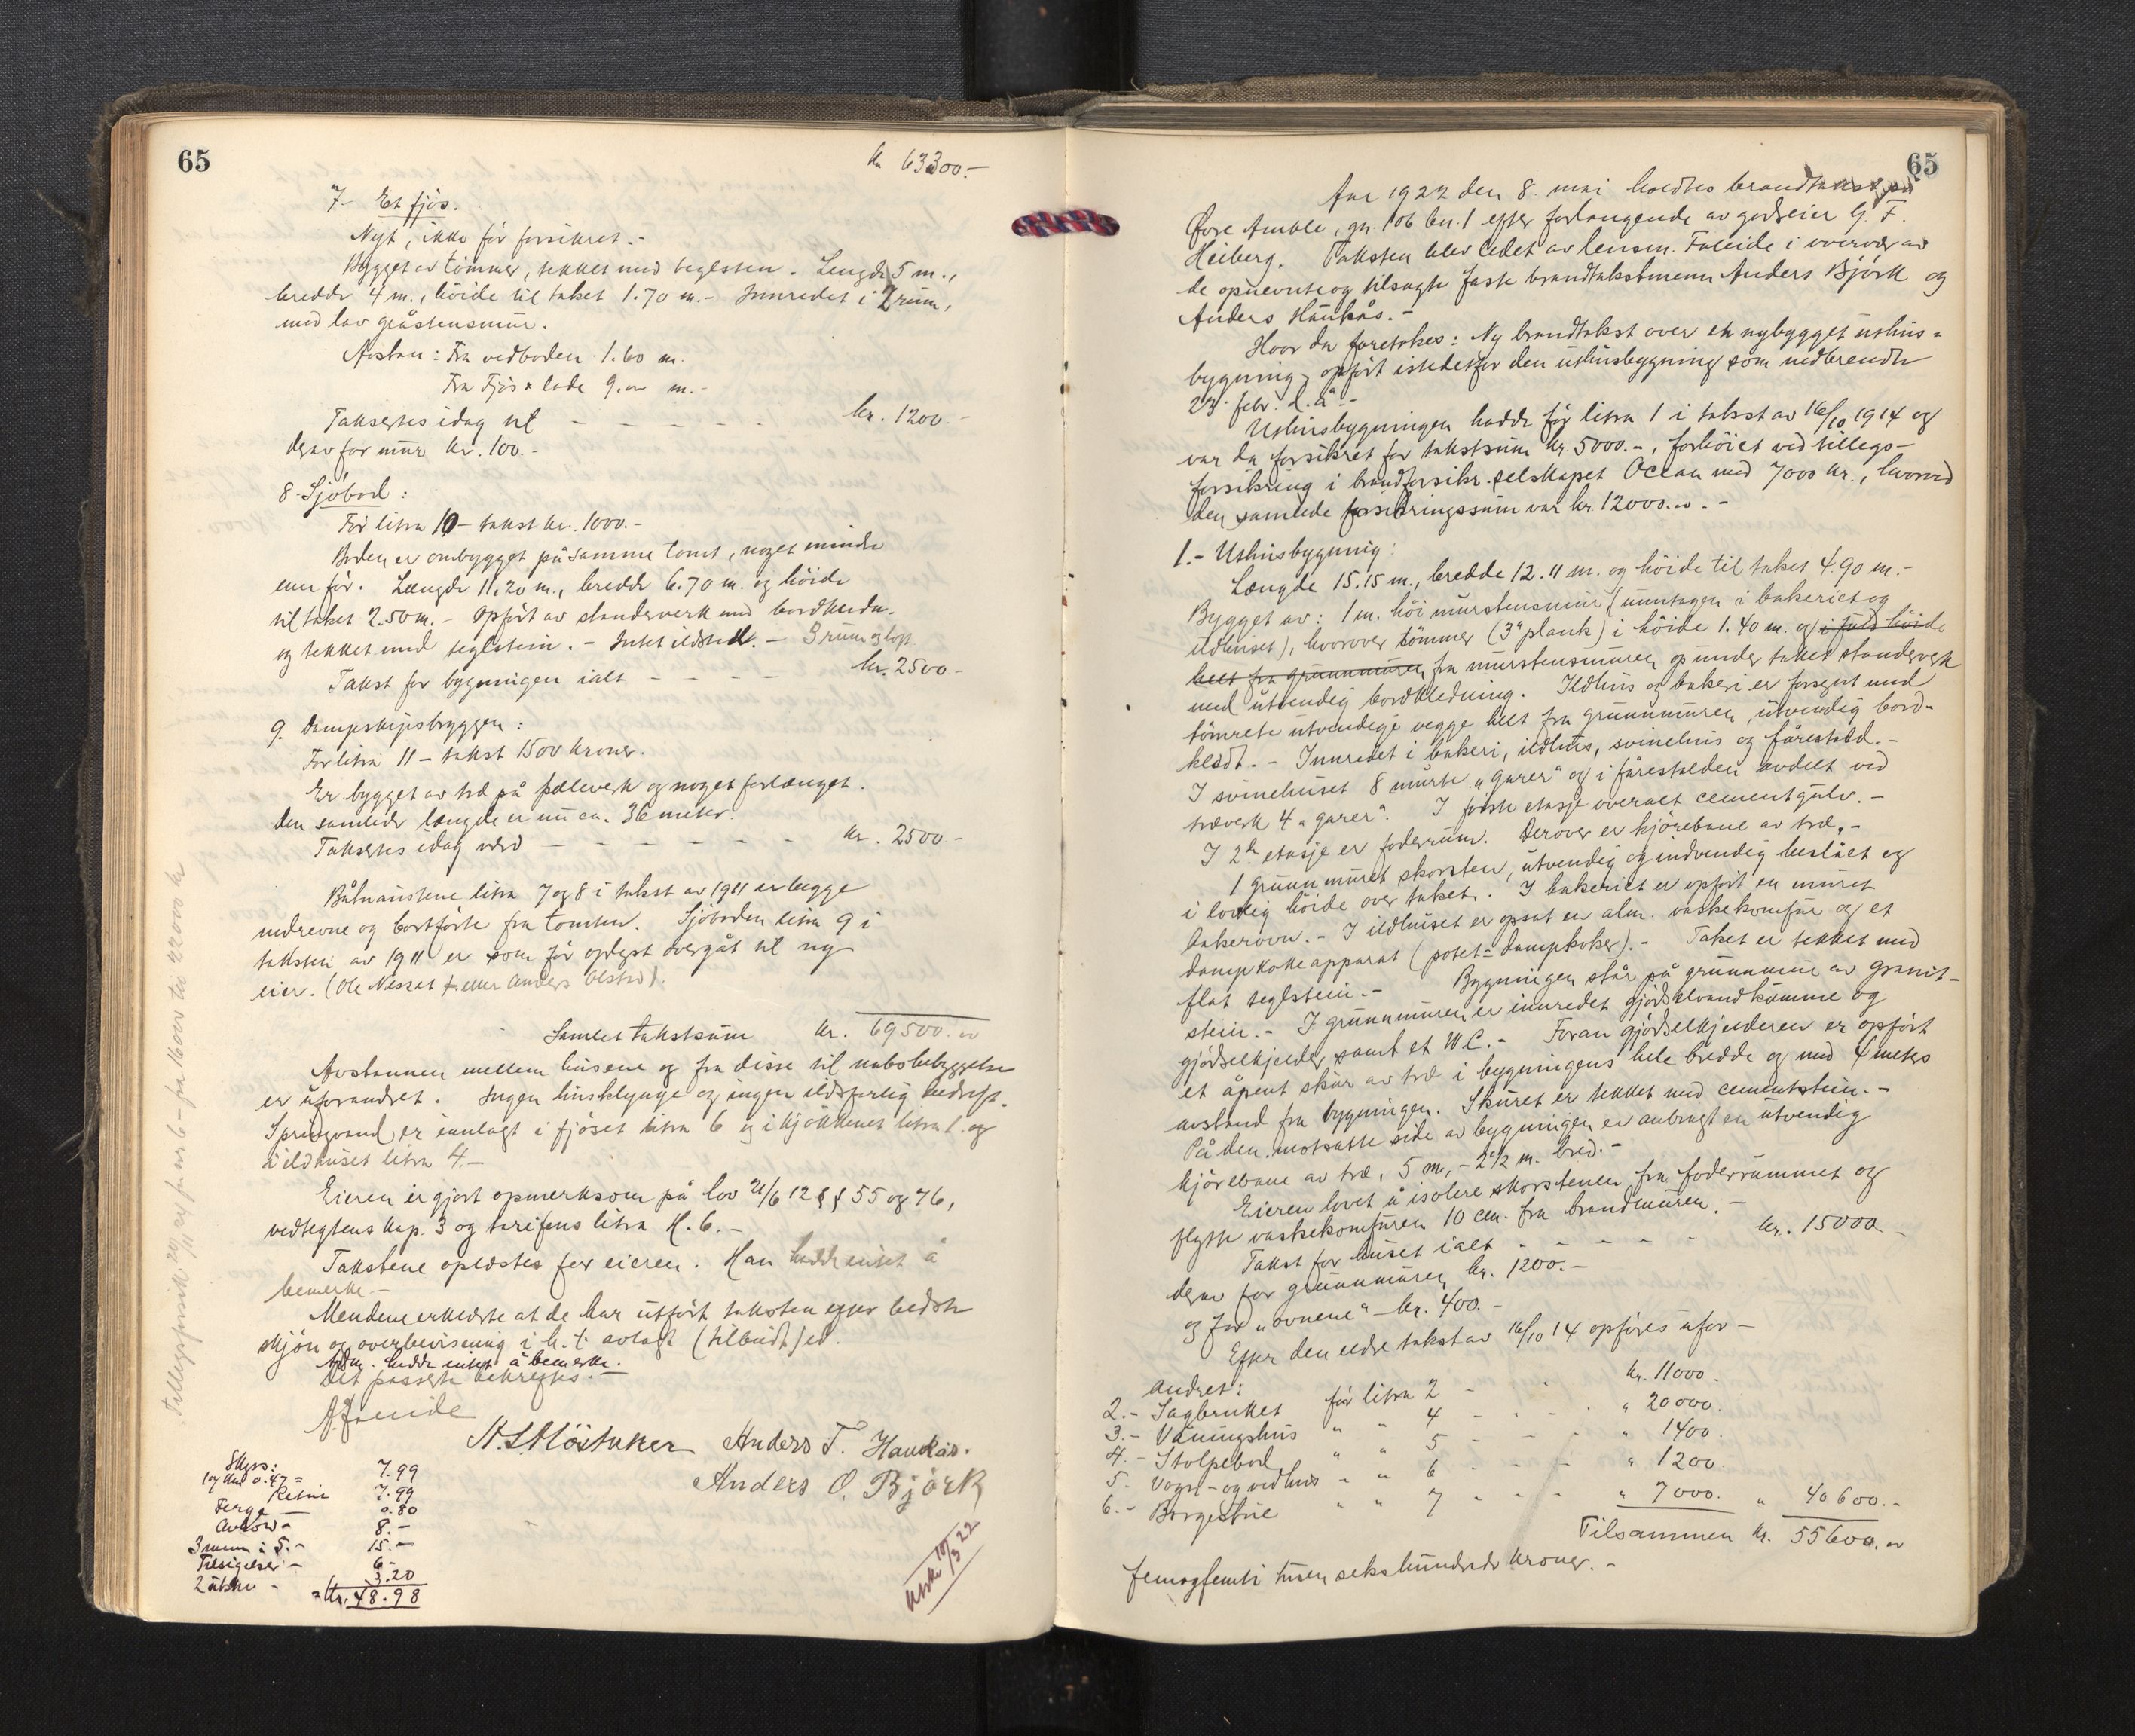 65
kr 63300.-
7. Et fjøs.
Nyt, ikke før forsikret.-
Bygget av tømmer, tekket med teglsten. Lengde 5 m.,
bredde 4 m., høide til taket 1.70 m.- Innredet i 2 rum,
med lav gråstensmur.
Avstan: Fra vedboden 1.60 m.
Fra Fjøs x lade 9.00 m.-
Takseres idag til - - - - - kr. 1200 -
derav for mur kr. 100.-
8. Sjöbod:
Før litra 10 - takst kr. 1000.-
Boden er ombygget på samme tomt, noget mindre
enn før. Længde 11.20 m., bredde 6.70 m. og höide
til taket 2.50 m. - Opført av standerverk med bordklædn.
og tekket med teglstein. - Intet ildsted. - 3 rum og loft
Takst for bygningen ialt - - - - kr. 2500 -
9. Dampskipsbryggen:
Før litra 11 - takst 1500 kroner.
Er bygget av træ på pæleverk og noget forlænget.
den samlede længde er nu ca. 36 meter.
Takseres idag værd - - - - - - kr. 2500 -
Båtnaustene litra 7 og 8 i takst av 1911 er begge
nedrevne og bortførte fra tomten. Sjöboden litra 9 i
taksten av 1911 er som før oplyst overgåt til ny
eier. (Ole Nessat eller Anders Olstad).
Samlet takstsum kr. 69500.00
Avstannen mellem husene og fra disse til nabobebyggelse
er uforandret. Ingen husklynge og ingen ildsfarlig bedrift.
Springvand er innlagt i fjöset litra 6 og i kjökkenet litra 1. og
i ildhuset litra 4.-
Eieren er gjort opmerksom på lov 21/6 12 §§ 55 og 76,
vedtegtens kap. 3 og tarifens litra H. 6.-
Takstene oplæstes for eieren. Han hadde intet å
bemerke.-
Mendene erklærte at de har utført taksten efter bedste
skjön og overbevisning i h. t. avlagt (tilbudt) ed.
Adm. hadde intet å bemerke.
Det passerte bekreftes.-
A. Faleide
Anders T. Haukås.
Anders O. Björk
Skyss:
17 km 0.47 = 7.99
Retur 7.99
Ferge - 0.80
8.-
3 menn à 5.- 15.-
Tilsigelser - 6-
2 - 3.20
= Kr. 48.98
Utskr 10/3 22
Tilleggsforsik. 20/11 24 for nr 6 - fra 16000 til 22000 kr
65
Aar 1922 den 8. mai holdtes brandtakst på
Øvre Amble, gn. 106 bn. 1 efter forlangende av godseier G. F.
Heiberg. Taksten blev ledet av lensm. Faleide i overvær av
de opnevnte og tilsagte faste brandtakstmenn Anders Björk og
Anders Haukås.-
Hvor da foretokes: Ny brandtakst over en nybygget uthus=
bygning, opført istedetfor den uthusbygning som nedbrendte
23. febr. d. å.-
Uthusbygningen hadde før litra 1 i takst av 16/10 1914 og
var da forsikret for takstsum kr. 5000.-, forhöiet ved tillegs-
forsikring i brandforsikr. selskapet Ocean med 7000 kr., hvorved
den samlede forsikringssum var kr. 12000.00.-
1.- Uthusbygning:
Længde 15.15 m., bredde 12.11 m. og höide til taket 4.90 m.-
Bygget av: 1 m. höi murstensmur (unntagen i bakeriet og
ildhuset), hvorover tömmer (3" plank) i höide 1.40 m. og i fuld höide
helt fra grunnmuren fra murstensmuren op under taket standerverk
med utvendig bordkledning. Ildhus og bakeri er forsynt med
tömrete utvendige vegge helt fra grunnmuren, utvendig bord-
klædt.- Innredet i bakeri, ildhus, svinehus og fårestald.-
I svinehuset 8 murte "garer" og i fårestalden avdelt ved
træverk 4 "garer". I förste etasje overalt cementgulv.-
I 2de etasje er foderrum. Derover er kjörebane av træ.-
1 grunnmuret skorsten, utvendig og indvendig beslået og
i lovlig höide over taket. I bakeriet er opfört en muret
bakerovn.- I ildhuset er opsat en alm. vaskekomfur og et
dampkokeapparat (potet=dampkoker).- Taket er tekket med
flat teglstein.- Bygningen står på grunnmur av granit-
stein.- I grunnmuren er innredet gjödselvandkumme og
gjödselkjelder, samt et W.C.- Foran gjödselkjelderen er opfört
et åpent skur av træ i bygningens hele bredde og med 4 meters
avstand fra bygningen. Skuret er tekket med cementstein.-
På den motsatte side av bygningen er anbragt en utvendig
kjörebane av træ, 5 m.- 2½ m. bred.-
Eieren lovet å isolere skorstenen fra foderrummet og
flytte vaskekomfuren 10 cm. fra brandmuren.-
Takst for huset ialt - - - - - kr. 15000 -
derav for grunnmuren kr. 1200.-
og for "ovnene" - kr. 400.-
Efter den eldre takst av 16/10 14 opföres ufor-
andret:
2.- Sagbruket før litra 2 - - kr. 11000.
3.- Våningshus " " 4 - - - " 20000.
4.- Stolpebod " " 5 - - - " 1400.
5.- Vogn- og vedhus " " 6 - - - " 1200.
6.- Borgestue " " 7 - - - " 7000. " 40600.-
Tilsammen kr. 55600.00
femogfemti tusen sekshundrede kroner.-